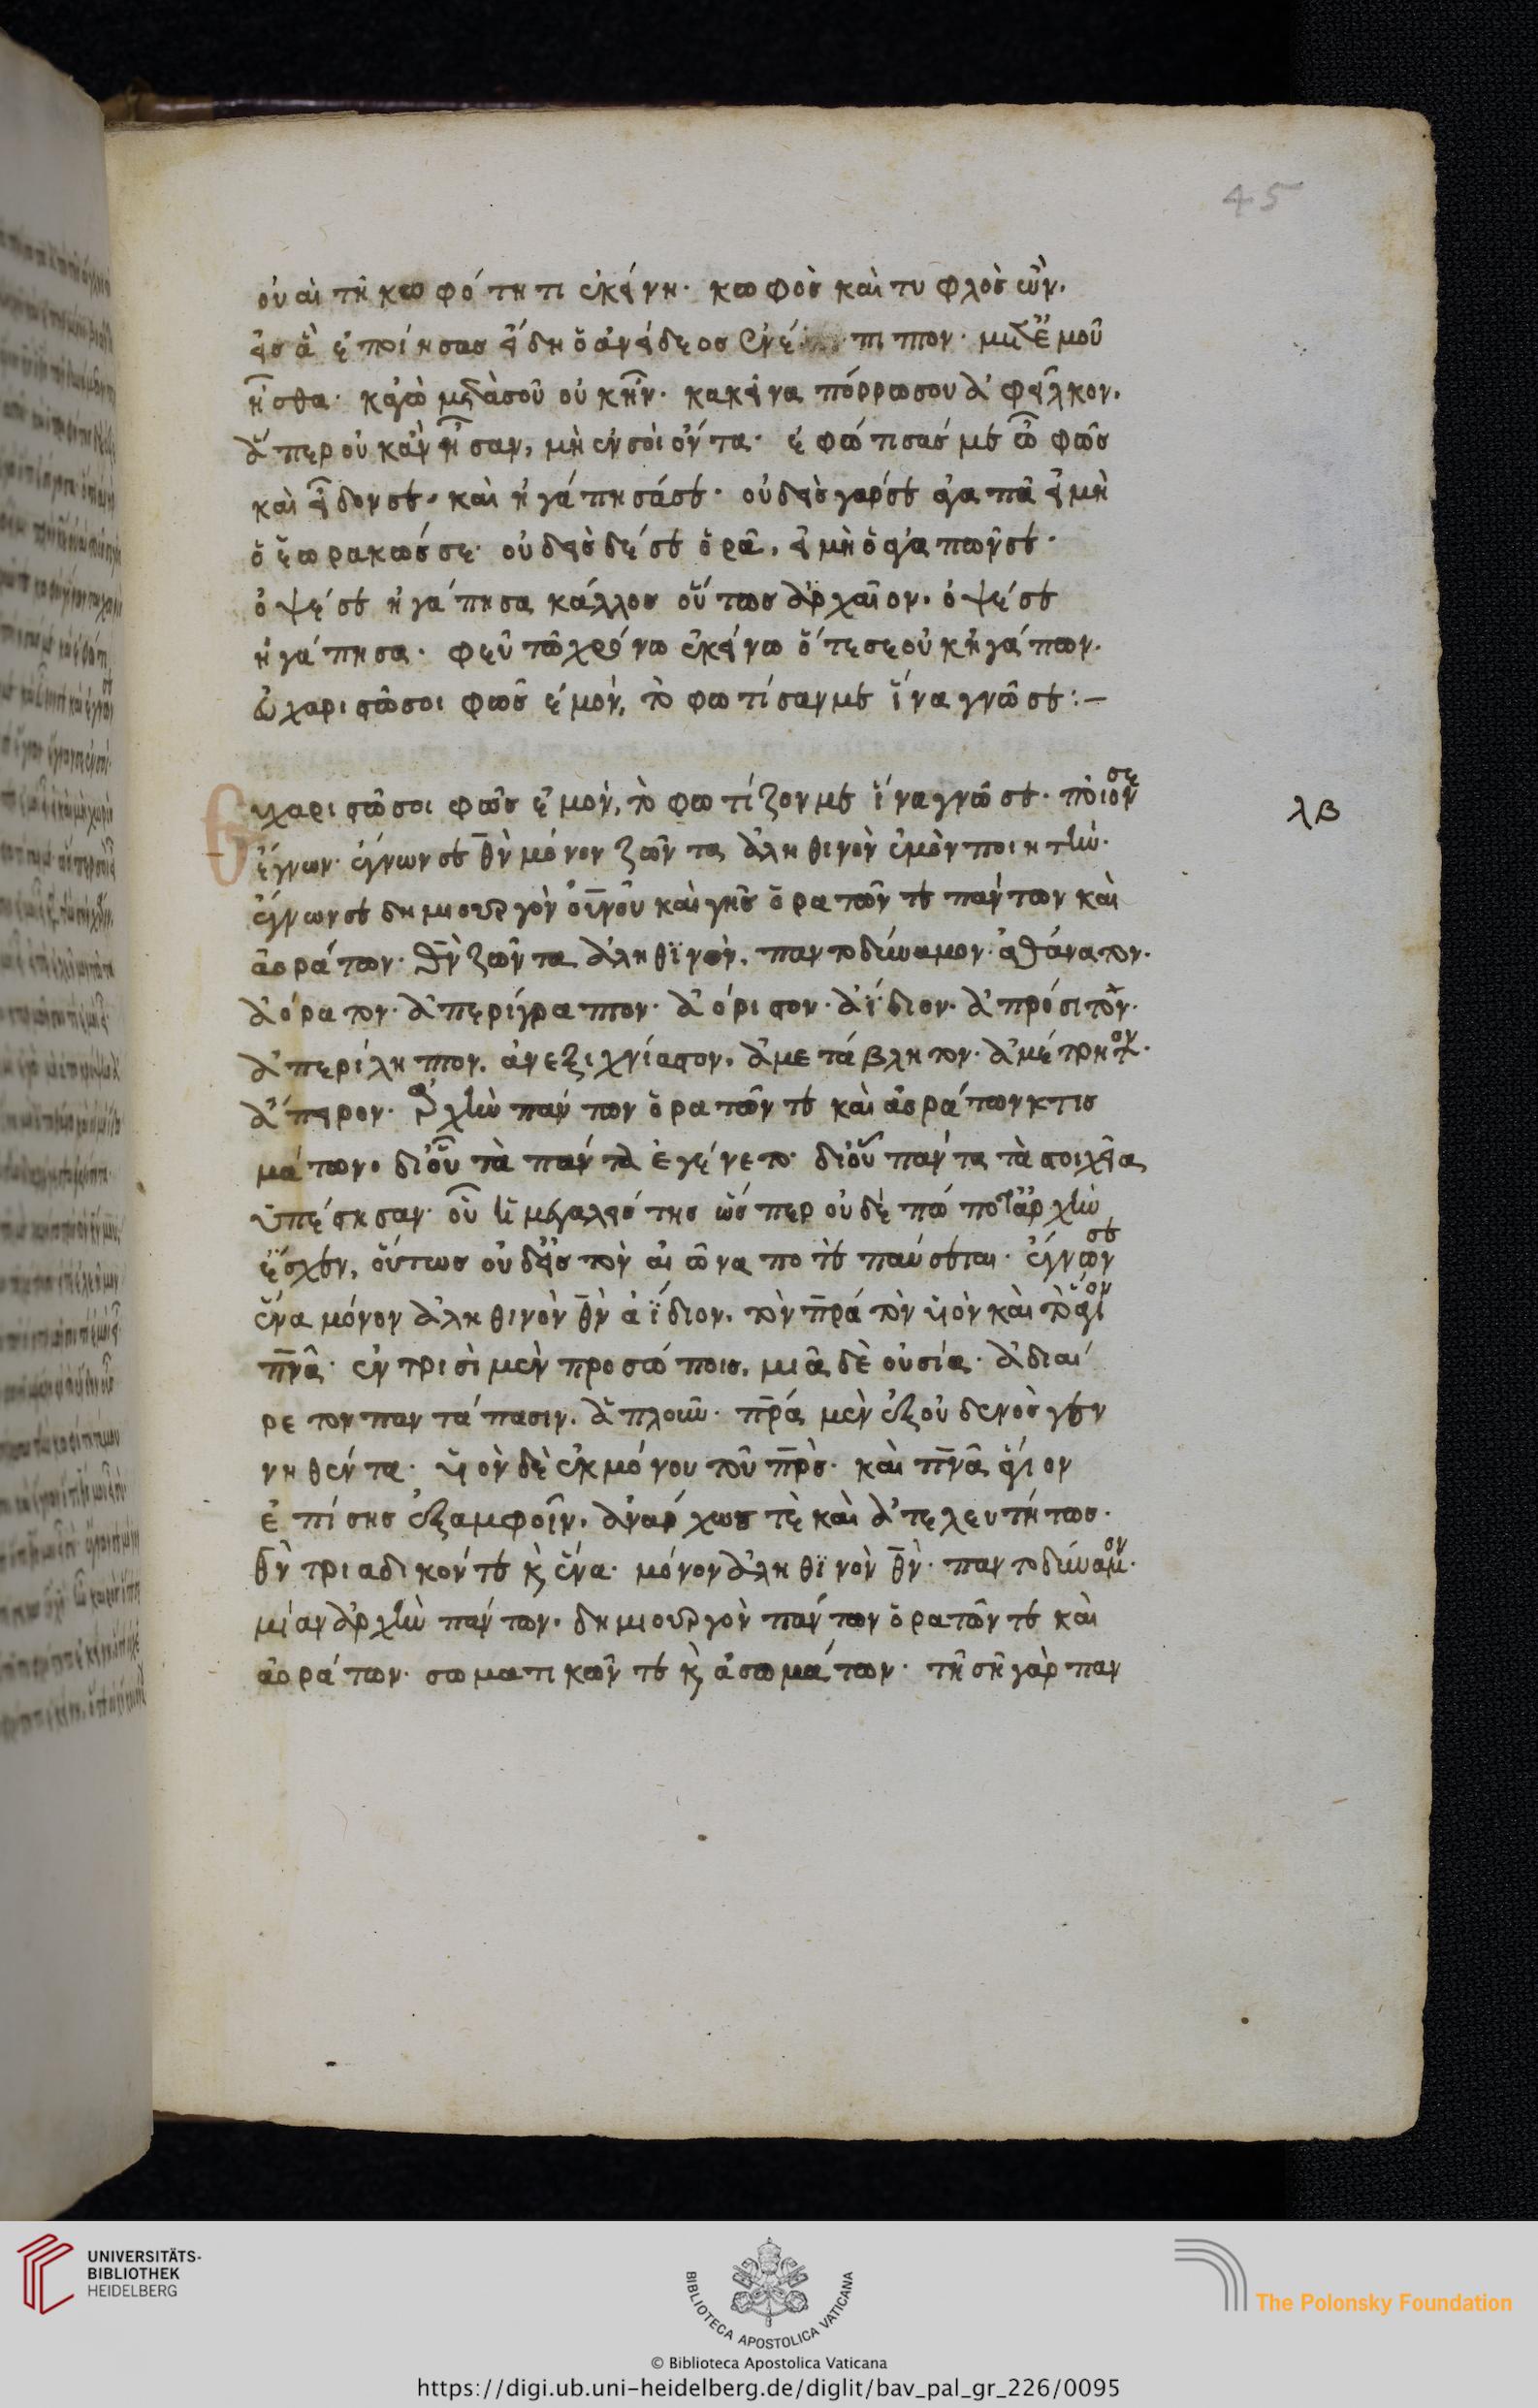 45
οὐαὶ τῇ κωφότητι ἐκείνῃ· κωφὸς καὶ τυφλὸς ὢν,
εἰς ἃ ἐποίησας εἴδη ὁ ἀνείδεος ἐνέπιπτον· μετ' ἐμοῦ
ἦσθα· κἀγὼ μετὰ σοῦ οὐκ ἦν· κακεῖνα πόρρω σου ἀφεῖλκον,
ἅπερ οὐκ ἂν ἦσαν, μὴ ἐν σοὶ ὄντα· ἐφώτισάς με ὦ φῶς
καὶ εἶδόν σε, καὶ ἠγάπησά σε· οὐδεὶς γάρ σε ἀγαπᾷ εἰ μὴ
ὁ ἑωρακώς σε· οὐδεὶς δέ σε ὁρᾷ, εἰ μὴ ὁ ἀγαπῶν σε·
ὀψέ σε ἠγάπησα κάλλος οὕτως ἀρχαῖον, ὀψέ σε
ἠγάπησα· φεῦ τῷ χρόνῳ ἐκείνῳ ὅτε σε οὐκ ἠγάπων.
εὐχαριστῶ σοι φῶς ἐμόν, τὸ φωτίσαν με ἵνα γνῶ σε:—
Εὐχαριστῶ σοι φῶς ἐμόν, τὸ φωτίζον με ἵνα γνῶ σε· ποῖόν σε
λβ
ἔγνων· ἔγνων σε θν μόνον ζῶντα ἀληθινὸν ἐμὸν ποιητήν·
ἔγνων σε δημιουργὸν οὐνοῦ καὶ γῆς ὁρατῶν τε πάντων καὶ
ἀοράτων· θν ζῶντα ἀληθϊνὸν, παντοδύναμον· ἀθάνατον·
ἀόρατον· ἀπερίγραπτον· ἀόριστον· ἀΐδιον· ἀπρόσιτον·
ἀπερίληπτον, ἀνεξιχνίαστον, ἀμετάβλητον· ἀμέτρητον·
ἄπειρον· ἀρχὴν πάντων ὁρατῶν τε καὶ ἀοράτων κτισ
μάτων, δι' οὗ τὰ πάντα ἐγένετο· δι' οὗ πάντα τὰ στοιχεῖα
ὑπέστησαν· οὗ ἡ μεγαλειότης ὥσπερ οὐδέ πώποτ' ἀρχὴν
ἔσχεν, οὕτως οὐδ' εἰς τὸν αἰῶνα ποτὲ παύσεται· ἔγνων σε
ἕνα μόνον ἀληθινὸν θν ἀΐδιον, τὸν πρα τὸν υἱὸν καὶ τὸ ἅγιον
πνα· ἐν τρισὶ μὲν προσώποις, μιᾷ δὲ οὐσίᾳ· ἀδιαί
ρετον παντάπασιν, ἁπλοῦν· πρα μὲν ἐξ οὐδενὸς γεν
νηθέντα· υἱὸν δὲ ἐκ μόνου τοῦ πρς· καὶ πνα ἅγιον
ἐπίσης ἐξ ἀμφοῖν, ἀνάρχως τὲ καὶ ἀτελευτήτως·
θν τριαδικόν τε κ ἕνα· μόνον ἀληθϊνὸν θν· παντοδύναμον·
μίαν ἀρχὴν πάντων, δημιουργὸν πάντων ὁρατῶν τε καὶ
ἀοράτων· σωματικῶν τε κ ἀσωμάτων· τῇ σῇ γὰρ παν
UNIVERSITÄTS-
BIBLIOTHEK
HEIDELBERG
BIBLIOTECA APOSTOLICA VATICANA
The Polonsky Foundation
© Biblioteca Apostolica Vaticana
https://digi.ub.uni-heidelberg.de/diglit/bav_pal_gr_226/0095